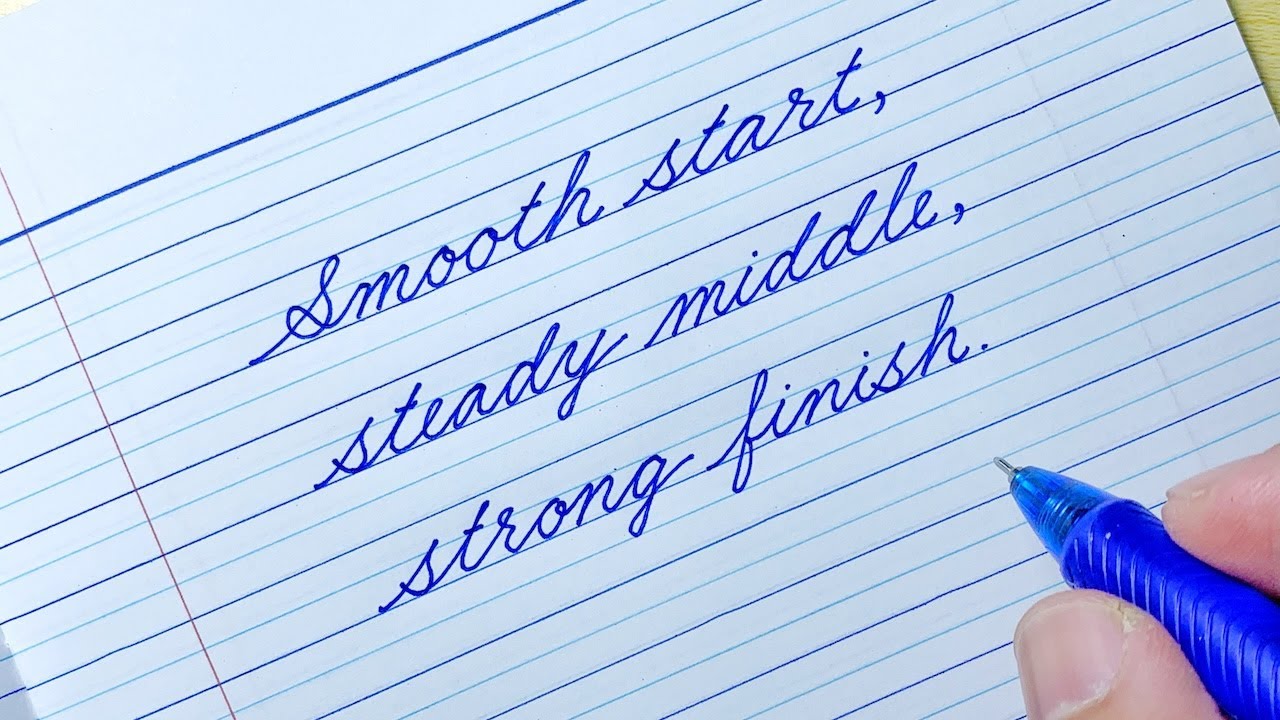 Smooth start,
steady middle,
strong finish.